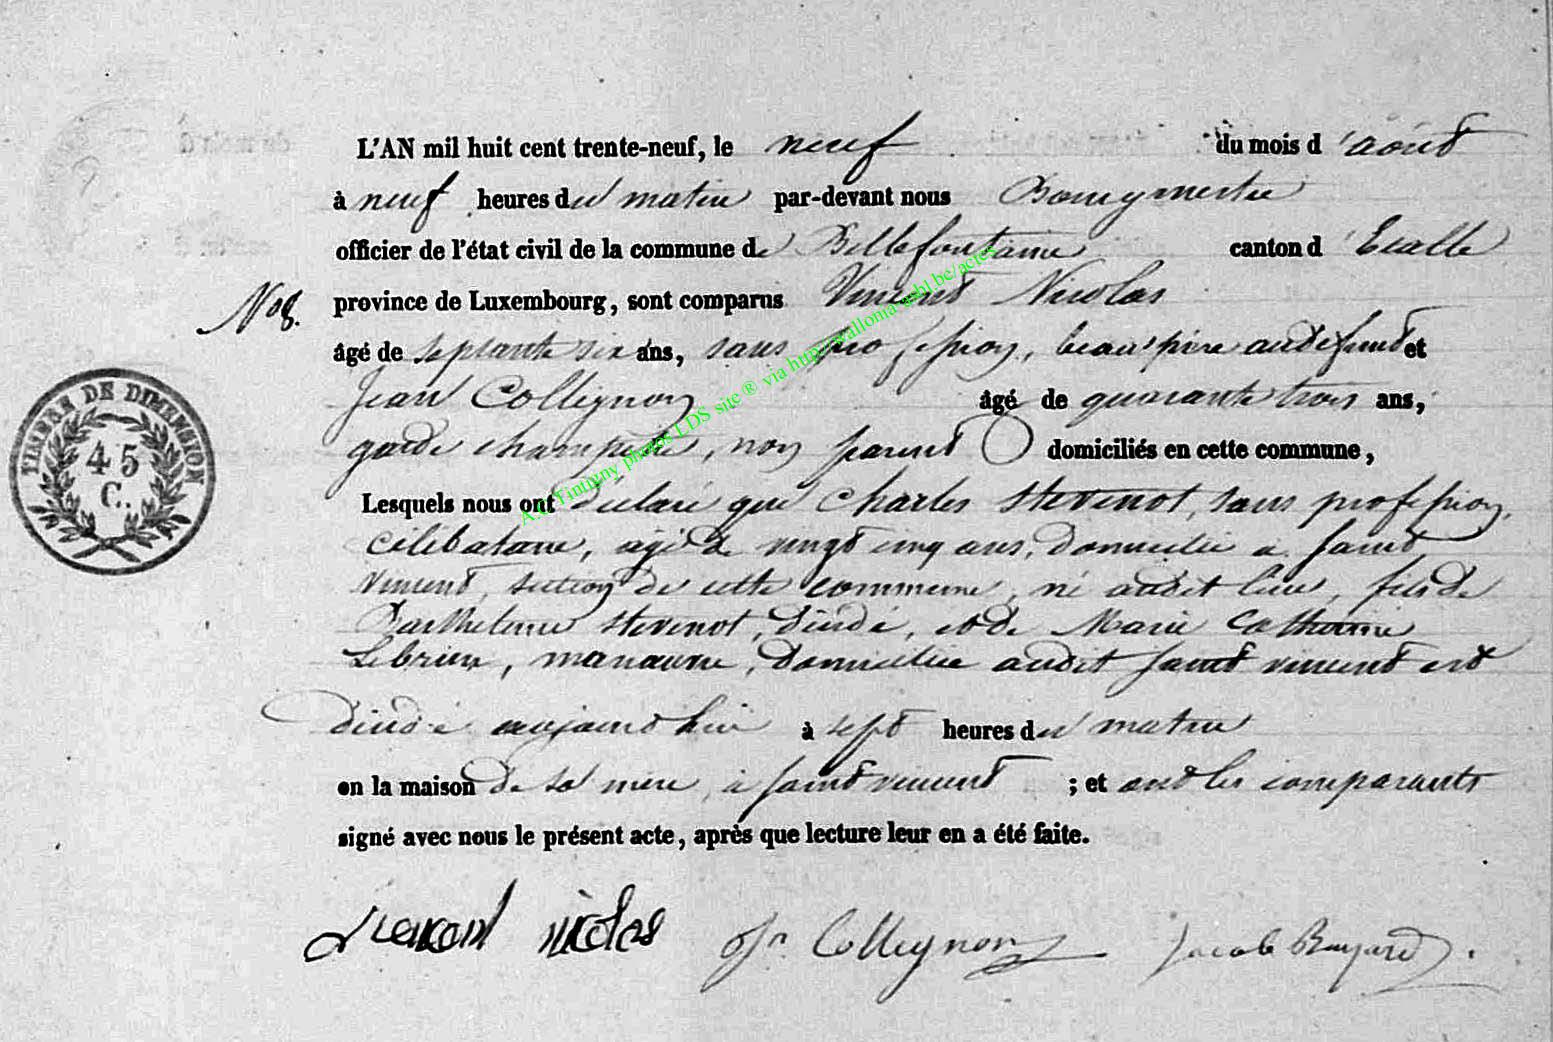 L'AN mil huit cent trente-neuf, le neuf du mois d'août
à neuf heures du matin par-devant nous Bourgmestre
officier de l'état civil de la commune de Bellefontaine canton d'Etalle
No 8. province de Luxembourg, sont comparus Vincent Nicolas
âgé de septante six ans, sans profession, beau père au défunt et
Jean Collignon âgé de quarante trois ans,
garde champêtre, non parent domiciliés en cette commune,
Lesquels nous ont déclaré que Charles Stevenot, sans profession,
célibataire, agé de vingt cinq ans, domicilié à Saint
Vincent, section de cette commune, né audit lieu, fils de
Barthelemie Stevenot, décédé, et de Marie Catherine
Lebrun, manœuvre, domiciliée audit Saint Vincent est
décédé aujourd'hui à sept heures du matin
en la maison de sa mère, à Saint Vincent ; et ont les comparants
signé avec nous le présent acte, après que lecture leur en a été faite.
TIMBRE DE DIMENSION
45
C.
A.C. Tintigny photos LDS site ® via http://wallonia-asbl.be/actes
nicolas Jn Collignon Jacob Bayard